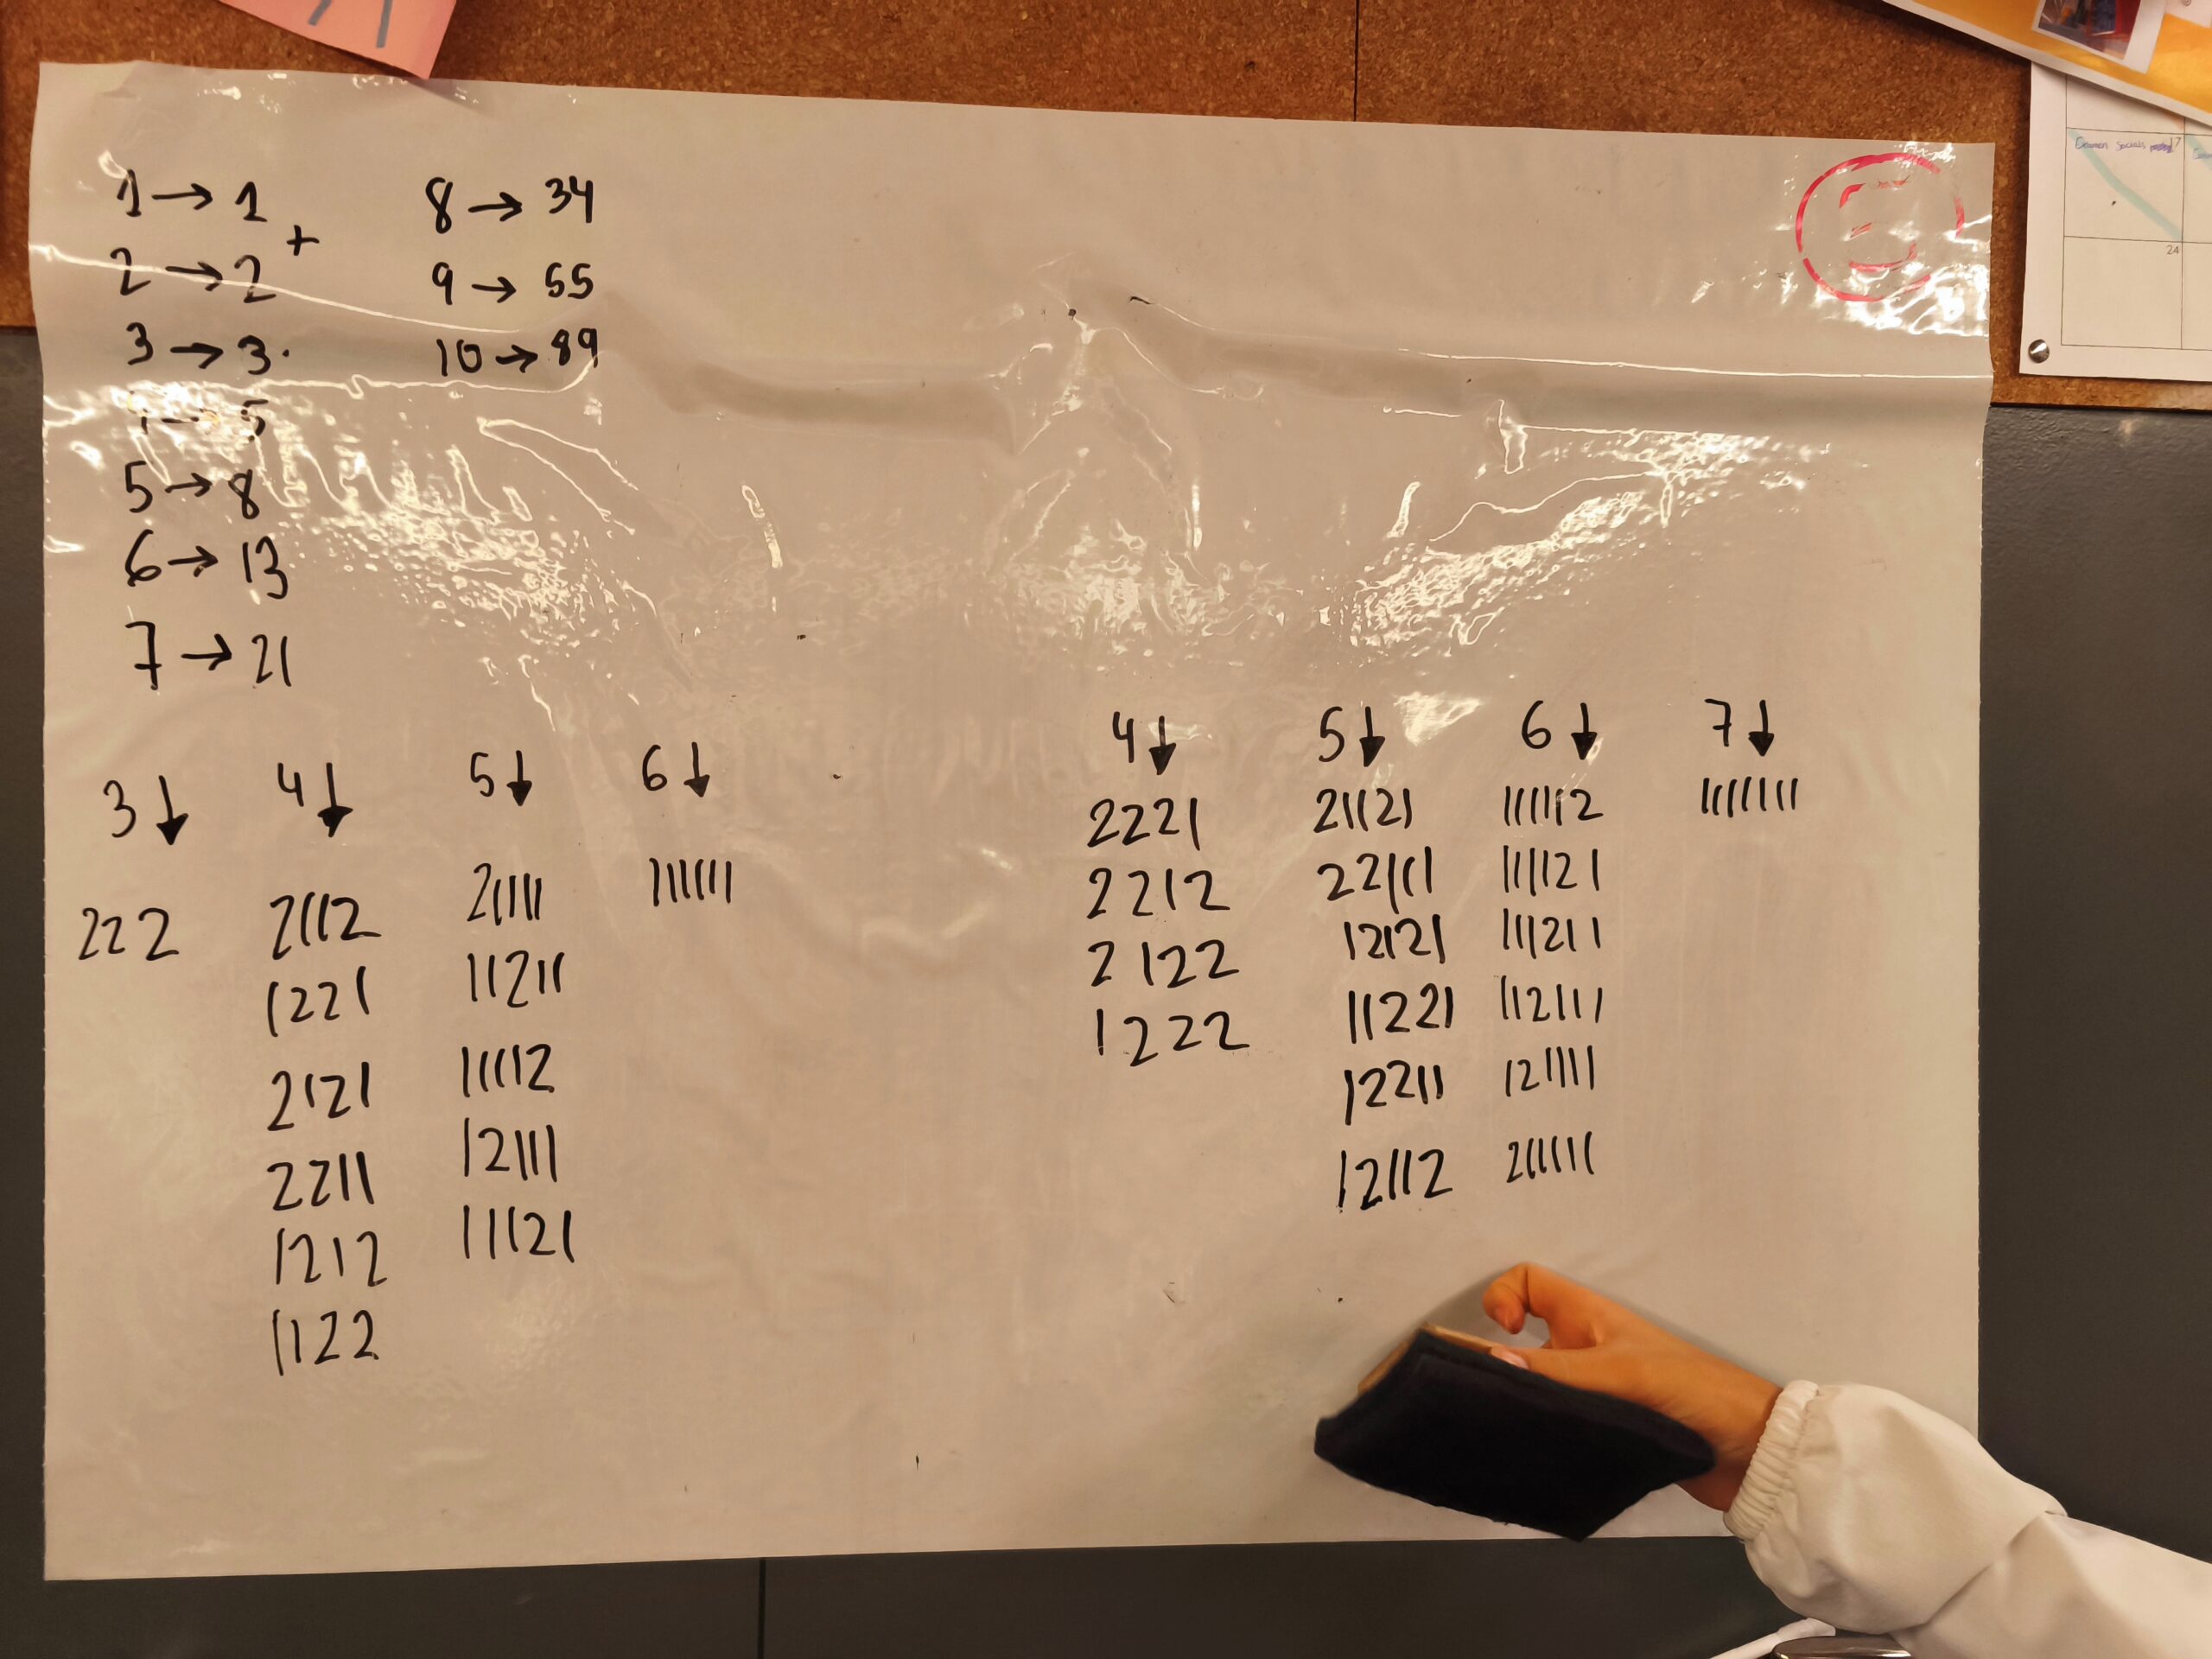 1 → 1
+
2 → 2
3 → 3.
5
5 → 8
6 → 13
7 → 21
8 → 34
9 → 55
10 → 89
3 ↓
222
4 ↓
2112
1221
2121
2211
1212
1122
5 ↓
21111
11211
11112
12111
11121
6 ↓
111111
4 ↓
2221
2212
2122
1222
5 ↓
21121
22111
12121
11221
12211
12112
6 ↓
111112
111121
111211
112111
121111
211111
7 ↓
1111111
17
24